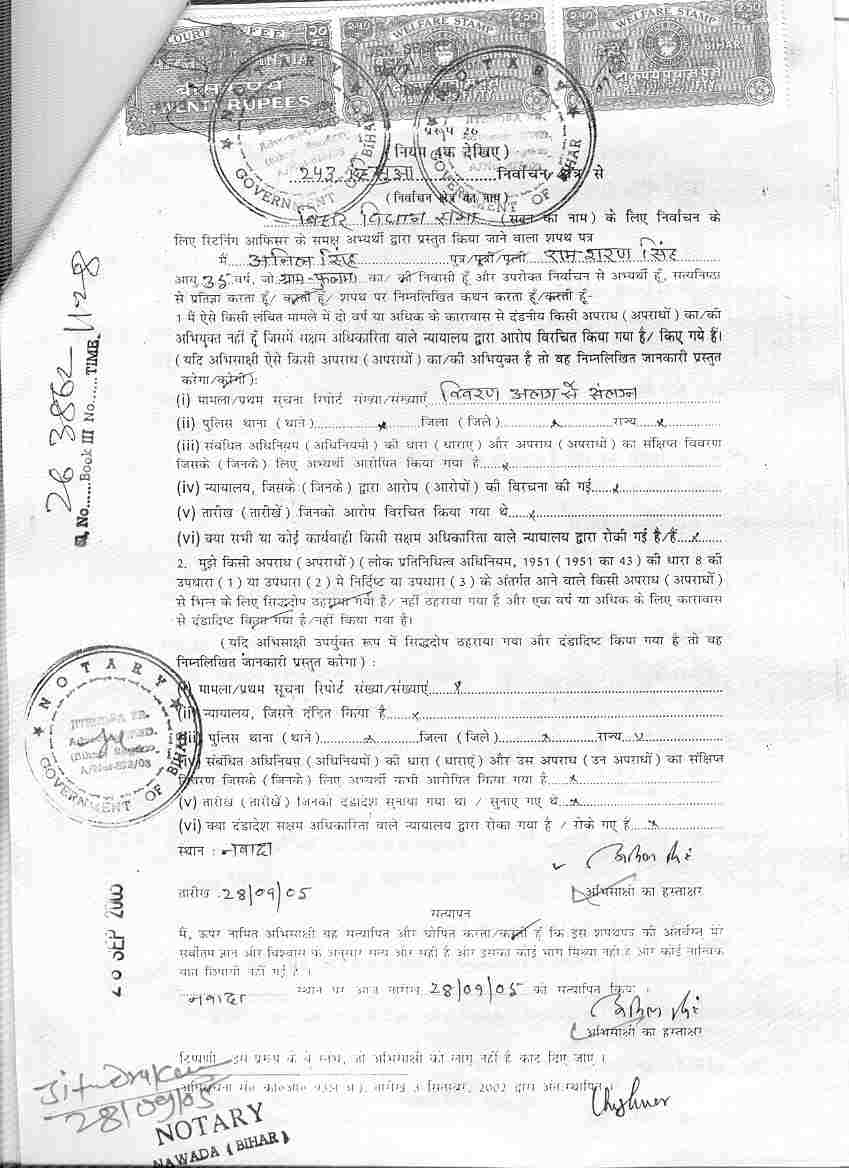 COURT FEE
WELFARE STAMP 2.50
WELFARE STAMP 2.50
BIHAR
TWENTY RUPEES
NOTARY
GOVERNMENT OF BIHAR
NOTARY
GOVERNMENT OF BIHAR
प्ररूप 26
(नियम 4क देखिए)
243 हिसुआ निर्वाचन क्षेत्र से
(निर्वाचन क्षेत्र का नाम)
बिहार विधान सभा (सदन का नाम) के लिए निर्वाचन के
लिए रिटर्निंग आफिसर के समक्ष अभ्यर्थी द्वारा प्रस्तुत किया जाने वाला शपथ पत्र
मैं अनिल सिंह पुत्र/पुत्री/पत्नी राम शरण सिंह
आयु 35 वर्ष, जो ग्राम- का/ की निवासी हूँ और उपरोक्त निर्वाचन से अभ्यर्थी हूँ, सत्यनिष्ठा
से प्रतिज्ञा करता हूँ/ करती हूँ/ शपथ पर निम्नलिखित कथन करता हूँ/करती हूँ-
1 मैं ऐसे किसी लंबित मामले में दो वर्ष या अधिक के कारावास से दंडनीय किसी अपराध (अपराधों) का/की
अभियुक्त नहीं हूँ जिसमें सक्षम अधिकारिता वाले न्यायालय द्वारा आरोप विरचित किया गया है/ किए गये हैं।
(यदि अभिसाक्षी ऐसे किसी अपराध (अपराधों) का/की अभियुक्त है तो वह निम्नलिखित जानकारी प्रस्तुत
करेगा/करेगी):
(i) मामला/प्रथम सूचना रिपोर्ट संख्या/संख्याएँ विवरण अलग से संलग्न
(ii) पुलिस थाना (थाने) x जिला (जिले) x राज्य x
(iii) संबंधित अधिनियम (अधिनियमों) की धारा (धाराएं) और अपराध (अपराधों) का संक्षिप्त विवरण
जिसके (जिनके) लिए अभ्यर्थी आरोपित किया गया है x
(iv) न्यायालय, जिसके (जिनके) द्वारा आरोप (आरोपों) की विरचना की गई x
(v) तारीख (तारीखें) जिनको आरोप विरचित किया गया थे x
(vi) क्या सभी या कोई कार्यवाही किसी सक्षम अधिकारिता वाले न्यायालय द्वारा रोकी गई है/हैं x
2. मुझे किसी अपराध (अपराधों) (लोक प्रतिनिधित्व अधिनियम, 1951 (1951 का 43) की धारा 8 की
उपधारा (1) या उपधारा (2) में निर्दिष्ट या उपधारा (3) के अंतर्गत आने वाले किसी अपराध (अपराधों)
से भिन्न के लिए सिद्धदोष ठहराया गया है/ नहीं ठहराया गया है और एक वर्ष या अधिक के लिए कारावास
से दंडादिष्ट किया गया है/नहीं किया गया है।
(यदि अभिसाक्षी उपर्युक्त रूप में सिद्धदोष ठहराया गया और दंडादिष्ट किया गया है तो वह
निम्नलिखित जानकारी प्रस्तुत करेगा) :
(i) मामला/प्रथम सूचना रिपोर्ट संख्या/संख्याएं x
(ii) न्यायालय, जिसने दंडित किया है x
(iii) पुलिस थाना (थाने) x जिला (जिले) x राज्य x
(iv) संबंधित अधिनियम (अधिनियमों) की धारा (धाराएं) और उस अपराध (उन अपराधों) का संक्षिप्त
विवरण जिसके (जिनके) लिए अभ्यर्थी कभी आरोपित किया गया है x
(v) तारीख (तारीखें) जिनको दंडादेश सुनाया गया था / सुनाए गए थे x
(vi) क्या दंडादेश सक्षम अधिकारिता वाले न्यायालय द्वारा रोका गया है / रोके गए हैं x
स्थान : नवादा
तारीख 28/09/05
अभिसाक्षी का हस्ताक्षर
सत्यापन
मैं, ऊपर नामित अभिसाक्षी यह सत्यापित और घोषित करता/करती हूँ कि इस शपथपत्र की अंतर्वस्तु मेरे
सर्वोत्तम ज्ञान और विश्वास के अनुसार सत्य और सही है और इसका कोई भाग मिथ्या नहीं है और कोई तात्विक
बात छिपायी नहीं गई है।
नवादा स्थान पर आज तारीख 28/09/05 को सत्यापित किया।
अभिसाक्षी का हस्ताक्षर
टिप्पणी इस प्ररूप के वे स्तंभ, जो अभिसाक्षी को लागू नहीं है काट दिए जाए।
तारीख 3 सितम्बर, 2002 द्वारा अंतःस्थापित।
28/09/05
NOTARY
NAWADA (BIHAR)
NOTARY
GOVERNMENT OF BIHAR
No. 26 3862 Book III No. TIME 11-28
SEP